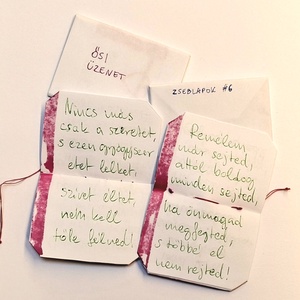 ŐSI
ÜZENET
ZSEBLAPOK #6
Nincs más
csak a szeretet,
s ezen gyógyszer
etet lelket,
szívet éltet,
nem kell
tőle félned!
Remélem
már sejted,
attól boldog
minden sejted,
ha önmagad
megfejted,
s többé el
nem rejted!